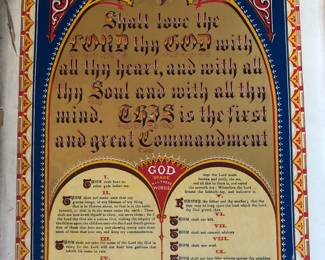 Shalt love the
LORD thy GOD with
all thy heart, and with all
thy Soul and with all thy
mind. THIS is the first
and great Commandment
GOD
SPAKE
ALL THESE
WORDS
I.
Thou shalt have no
other gods before me.
II.
Thou shalt not make unto thee any
graven image, or any likeness of any thing
that is in Heaven above, or that is in the earth
beneath, or that is in the water under the earth. Thou
shalt not bow down thyself to them, nor serve them: for I
the Lord thy God am a jealous God, visiting the iniquity of
the fathers upon the children unto the third and fourth generation
of them that hate me; and shewing mercy unto thousands
of them that love me, and keep my commandments.
III.
Thou shalt not take the name of the Lord thy God in
vain; for the Lord will not hold him guiltless that
taketh his name in vain.
IV.
days the Lord made
heaven and earth, the sea,
and all that in them is, and rested
the seventh day: Wherefore the Lord
blessed the Sabbath day, and hallowed it.
V.
Honour thy father and thy mother; that thy
days may be long upon the land which the Lord
thy God giveth thee.
VI.
Thou shalt not kill.
VII.
Thou shalt not commit adultery.
VIII.
Thou shalt not steal.
IX.